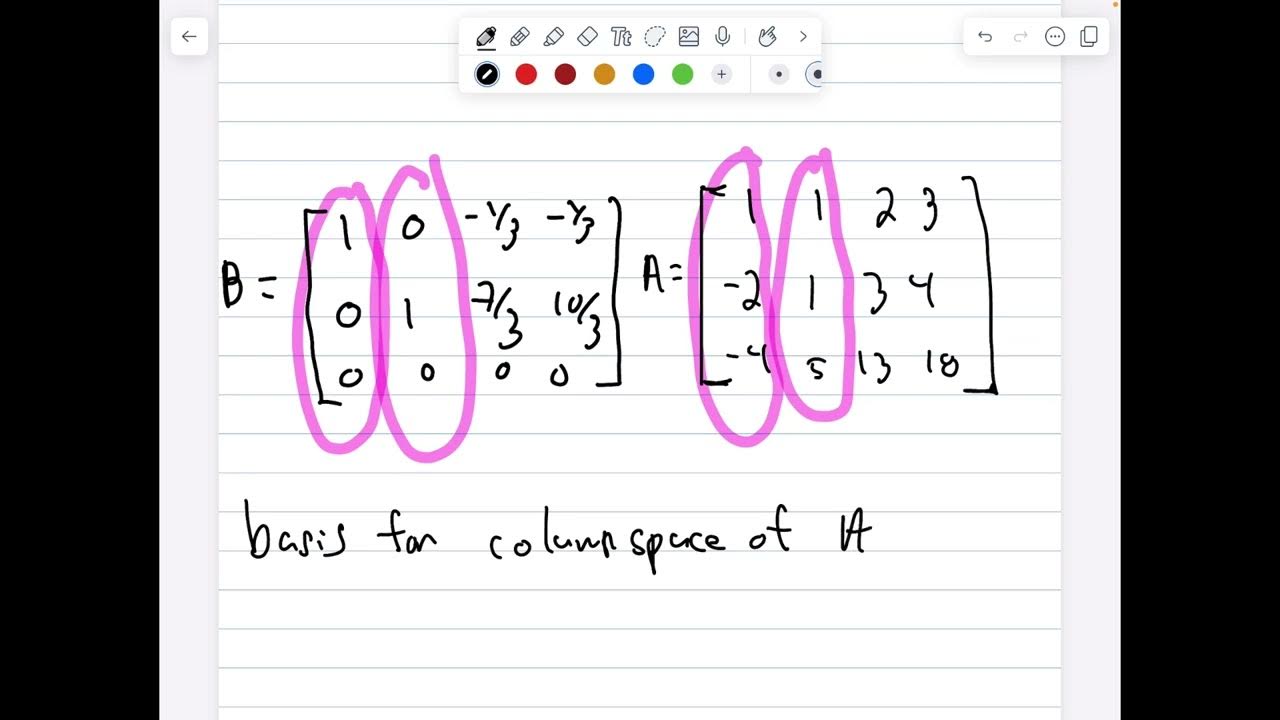 Tt
B = [ 1 0 -1/3 -1/3 ]
0 1 7/3 10/3
0 0 0 0
A = [ 1 1 2 3 ]
-2 1 3 4
-4 5 13 18
basis for column space of A